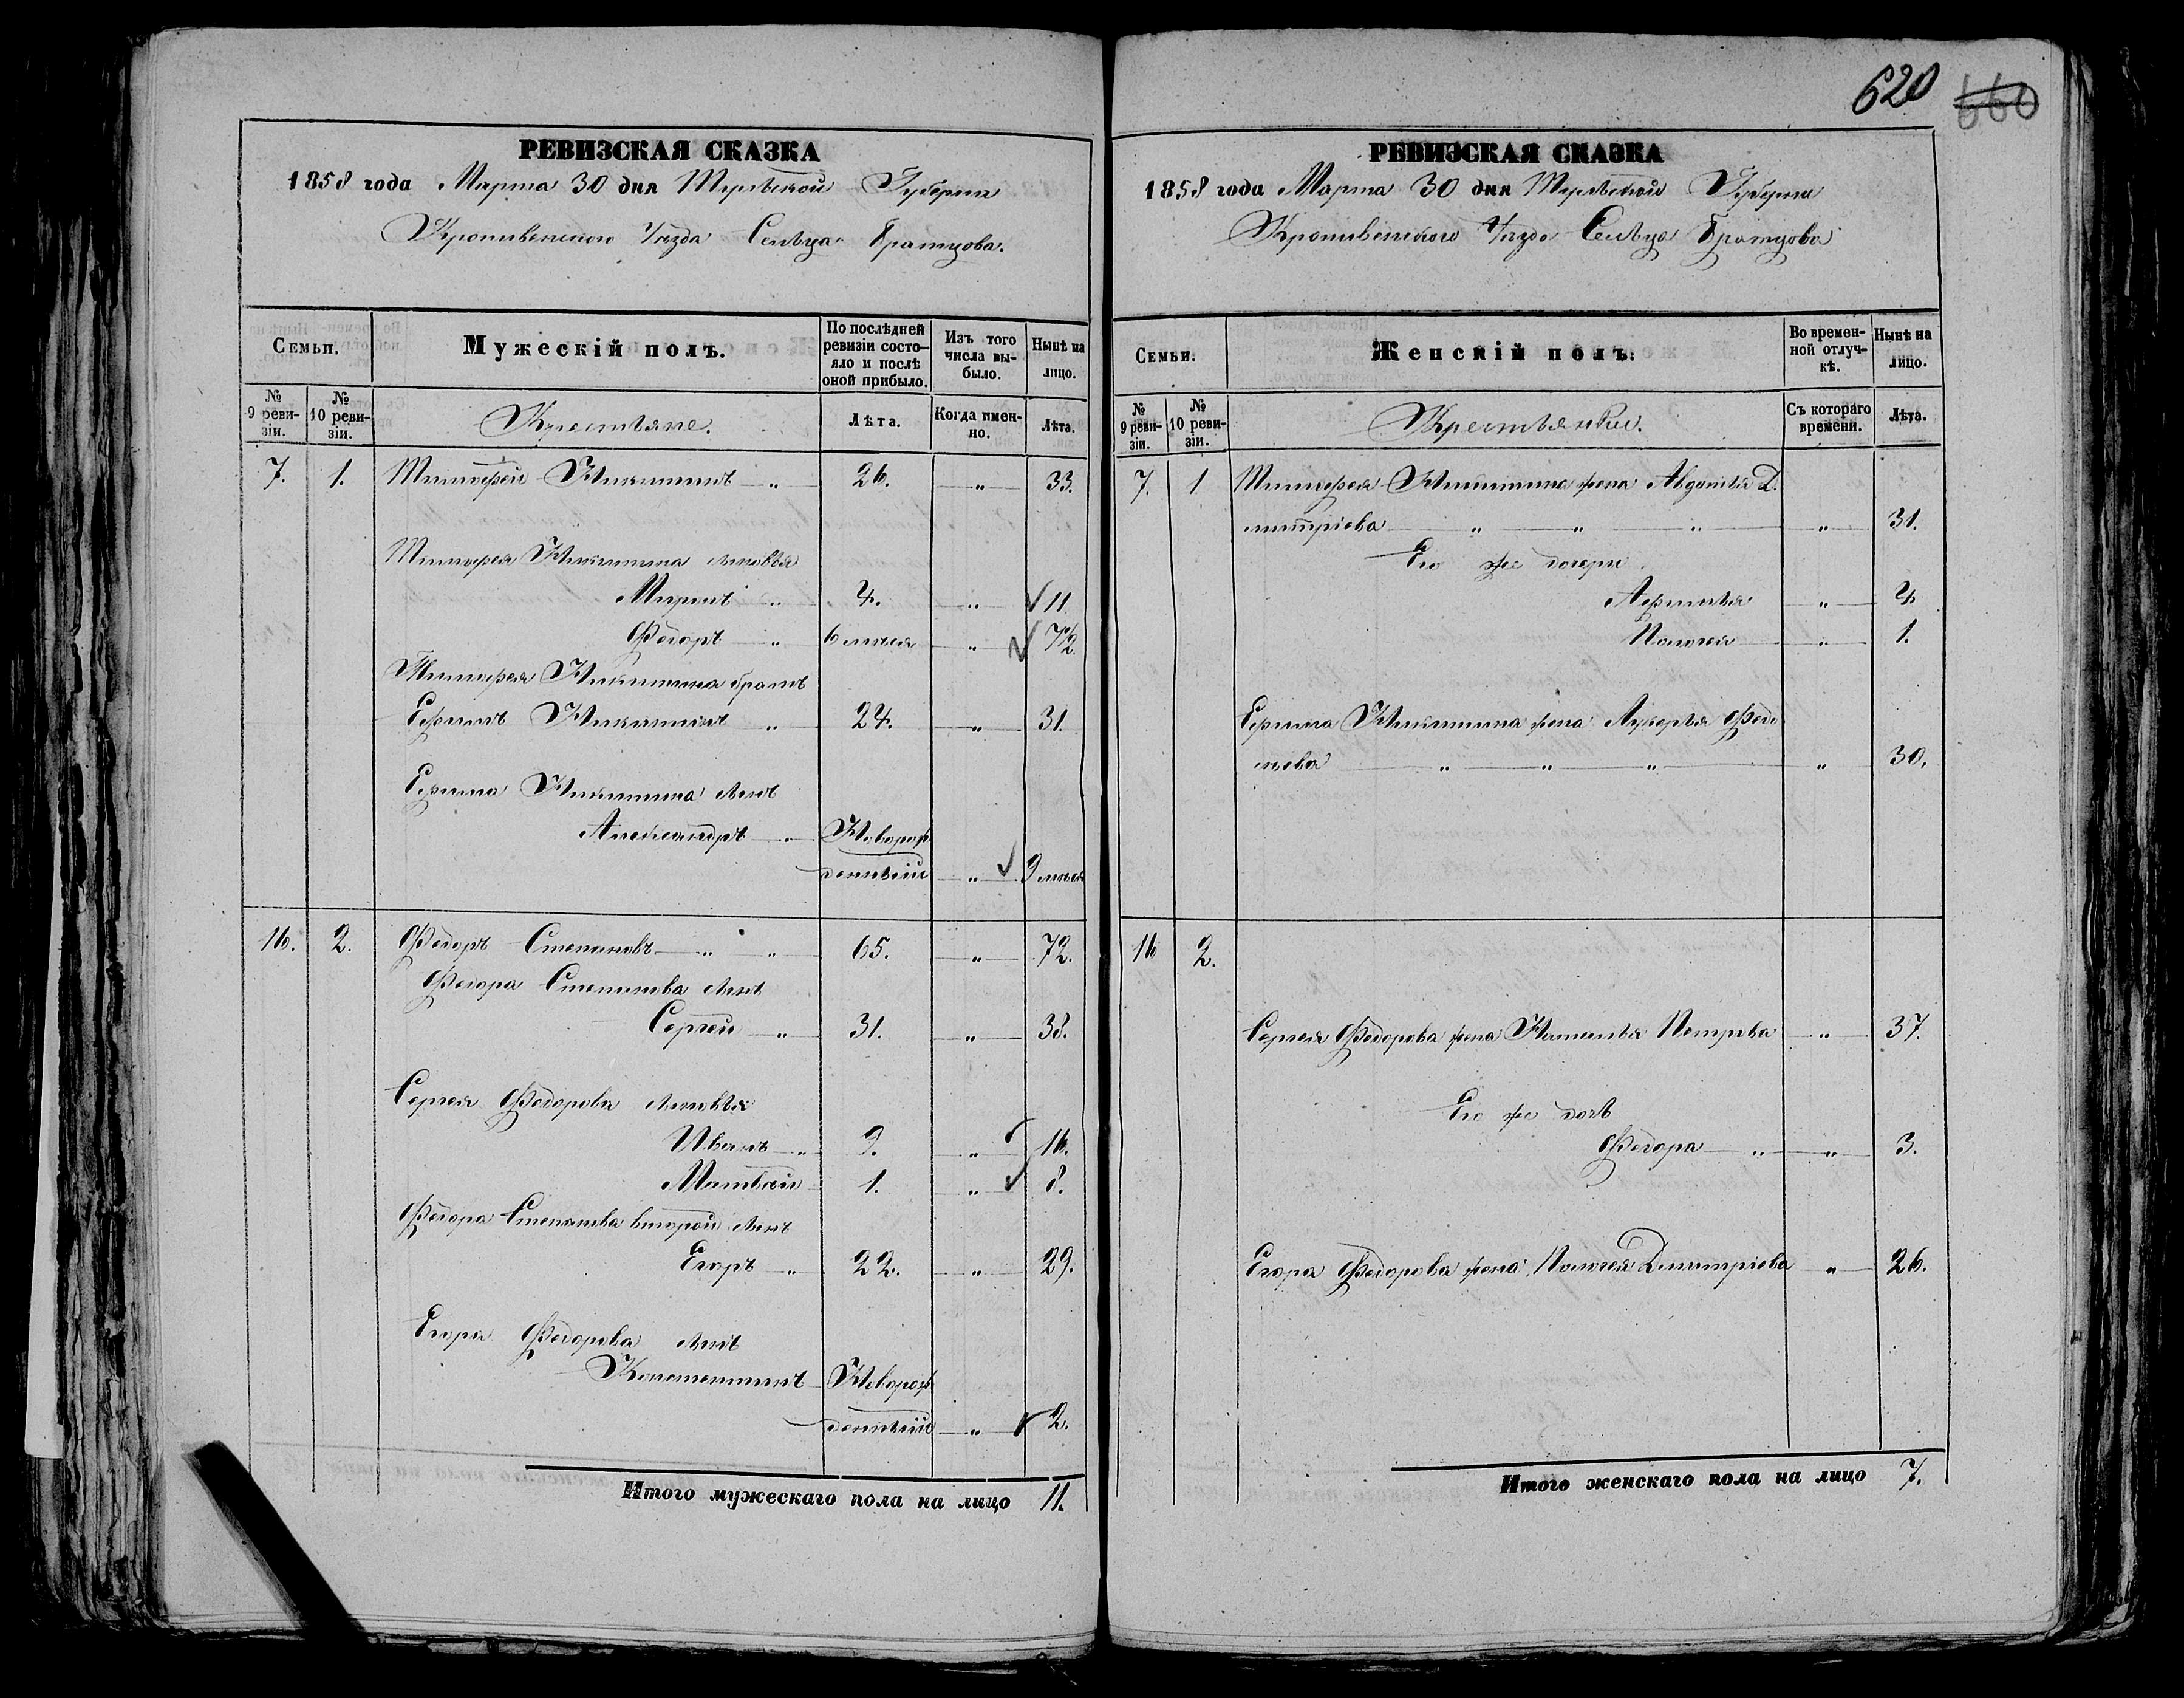 620 660
РЕВИЗСКАЯ СКАЗКА
1858 года Марта 30 дня Тульской Губернии
Крапивенского Уѣзда Сельца Братцова.
Семьи.
Мужескій полъ.
По послѣдней ревизіи состояло и послѣ оной прибыло.
Изъ того числа выбыло.
Нынѣ на лицо.
№ 9 ревизіи.
№ 10 ревизіи.
Крестьяне.
Лѣта.
Когда именно.
Лѣта.
7. 1. Тимофей Никитинъ „ 26. „ 33.
Тимофея Никитина сыновья
Миронъ „ 4. „ 11
Федоръ „ 6 месяц „ 7 1/2.
Тимофея Никитина братъ
Ефимъ Никитинъ „ 24. „ 31.
Ефима Никитина сынъ
Александръ „ Новорож
денный „ 9 месяц
16. 2. Федоръ Степановъ „ „ 65. „ 72.
Федора Степанова сынъ
Сергей „ 31. „ 38.
Сергея Федорова сыновья
Иванъ „ 9. „ 16.
Матвей 1. „ 8.
Федора Степанова второй сынъ
Егоръ „ 22. „ 29.
Егора Федорова сынъ
Константинъ Новорож
денный „ 2.
Итого мужескаго пола на лицо 11.
РЕВИЗСКАЯ СКАЗКА
1858 года Марта 30 дня Тульской Губернии
Крапивенского Уѣзда Сельца Братцова
Семьи.
Женскій полъ.
Во временной отлучкѣ.
Нынѣ на лицо.
№ 9 ревизіи.
№ 10 ревизіи.
Крестьянки.
Съ котораго времени.
Лѣта.
7. 1 Тимофея Никитина жена Авдотья Д
митріева „ „ „ „ 31.
Его же дочери
Афимья „ 4
Пологея „ 1.
Ефима Никитина жена Лукерья Фего
нова „ „ „ „ 30.
16 2.
Сергея Федорова жена Наталья Петрова „ 37.
Его же дочь
Федора „ „ 3.
Егора Федорова жена Пологея Дмитріева „ 26.
Итого женскаго пола на лицо 7.